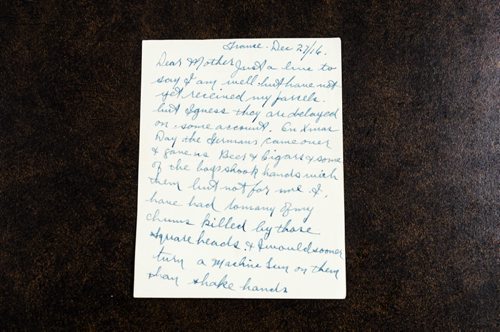 France. Dec 27/16.
Dear Mother Just a line to
say I am well but have not
yet received my parcels.
but I guess they are delayed
on some account. On Xmas
Day the Germans came over
& gave us Beer & Cigars & some
of the boys shook hands with
them but not for me. I,
have had to many of my
chums killed by those
square heads. & I would sooner
turn a Machine Gun on them
than shake hands